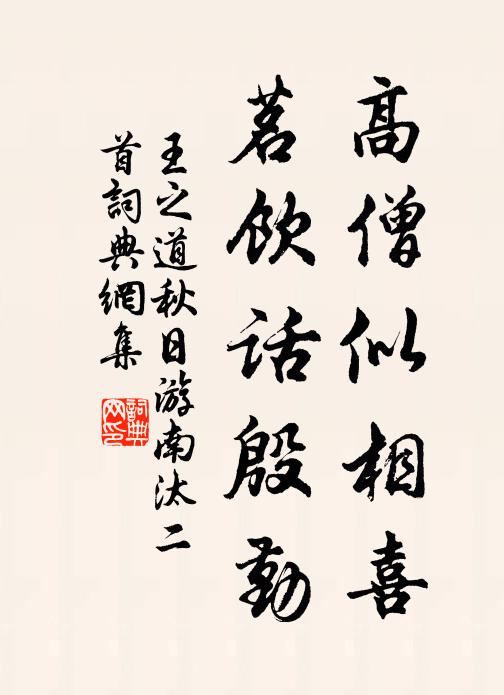 高僧似相喜
茗飲話殷勤
王之道秋日游南汰二
首詞典網集
詞典
网印